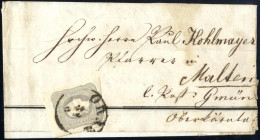 Hochw. Herr Paul Kohlmayer
Pfarrer in
Malten
l. Post: Gmünd
Oberkärnten